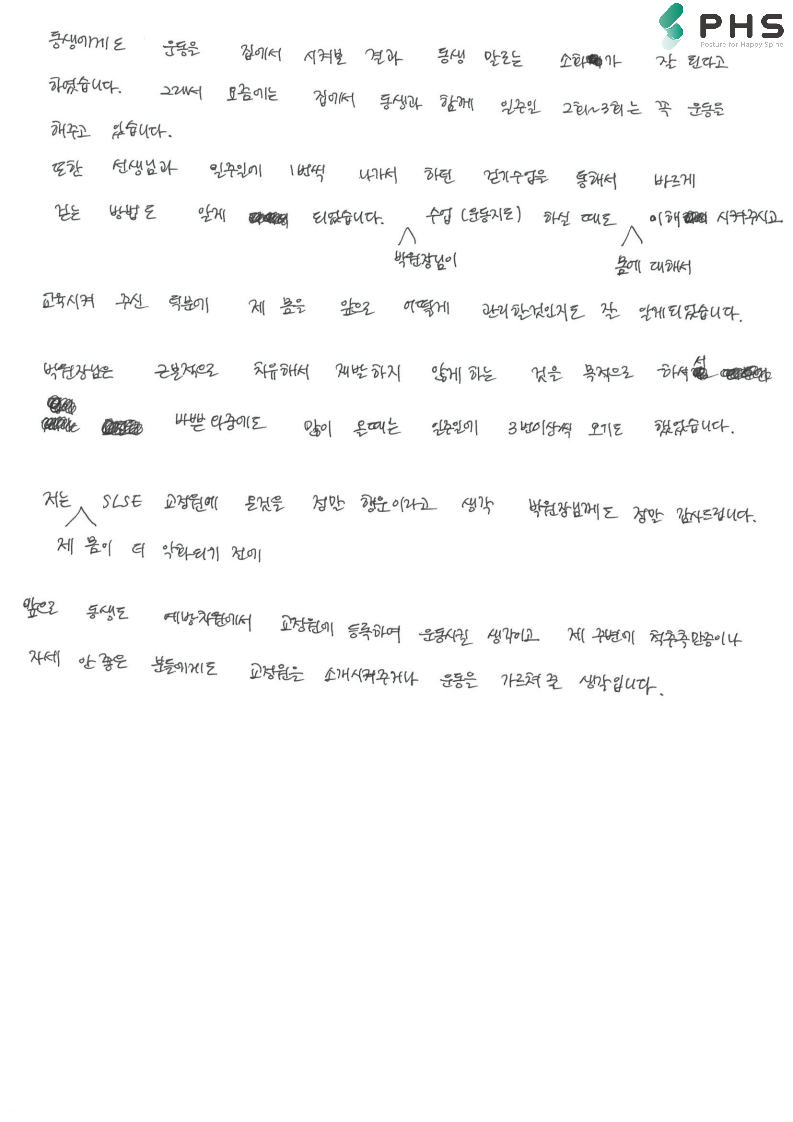 PHS
Posture for Happy Spine
동생에게도 운동을 집에서 시켜본 결과 동생 말로는 소화가 잘 된다고
하였습니다. 그래서 요즘에는 집에서 동생과 함께 일주일 2회~3회는 꼭 운동을
해주고 있습니다.
또한 선생님과 일주일에 1번씩 나가서 하던 걷기수업을 통해서 바르게
걷는 방법도 알게 되었습니다. 수업(운동지도) 하실 때도 이해 시켜주시고
박원장님이 몸에 대해서
교육시켜 주신 덕분에 제 몸을 앞으로 어떻게 관리할것인지도 잘 알게되었습니다.
박원장님은 근본적으로 치유해서 재발하지 않게하는 것을 목적으로 하셔서
바쁜 와중에도 많이 올때는 일주일에 3번이상씩 오기도 했었습니다.
저는 SLSE 교정원에 온것을 정말 행운이라고 생각 박원장님께도 정말 감사드립니다.
제 몸이 더 악화되기 전에
앞으로 동생도 예방차원에서 교정원에 등록하여 운동시킬 생각이고 제 주변에 척추측만증이나
자세 안 좋은 분들에게도 교정원을 소개시켜주거나 운동을 가르쳐 줄 생각입니다.